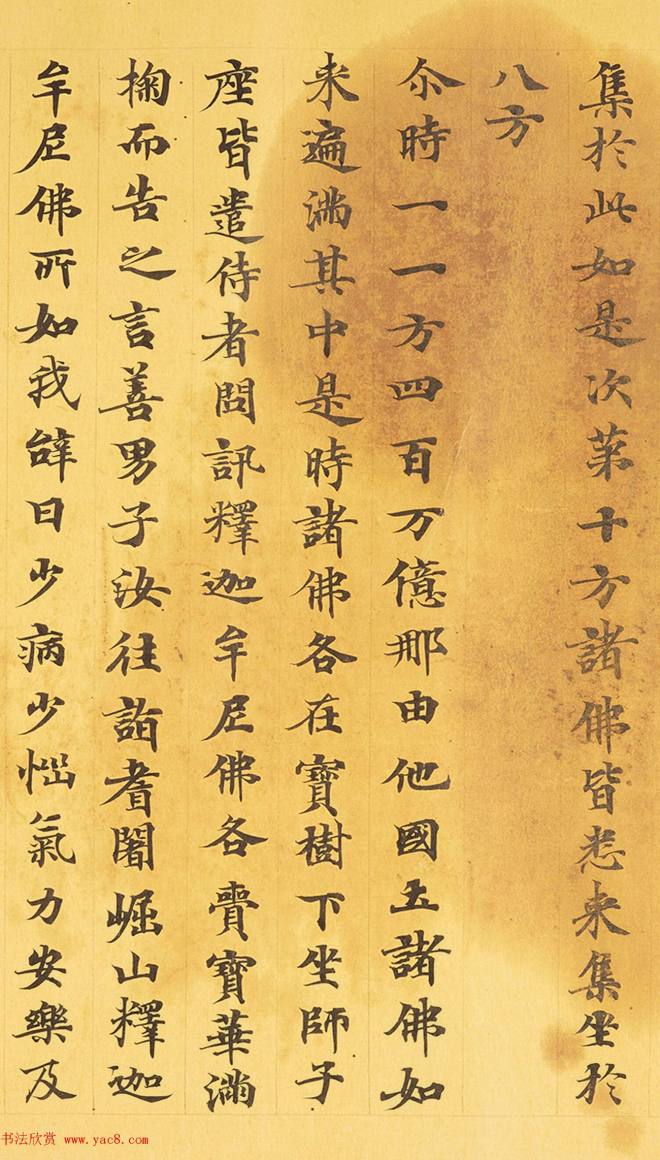 集於此如是次苐十方諸佛皆悉来集坐於
八方
尒時一一方四百万億那由他國土諸佛如
来遍滿其中是時諸佛各在寶樹下坐師子
座皆遣侍者問訊釋迦牟尼佛各賷寶華滿
掬而告之言善男子汝往詣耆闍崛山釋迦
牟尼佛所如我辝曰少病少惱氣力安樂及
书法欣赏 www.yac8.com